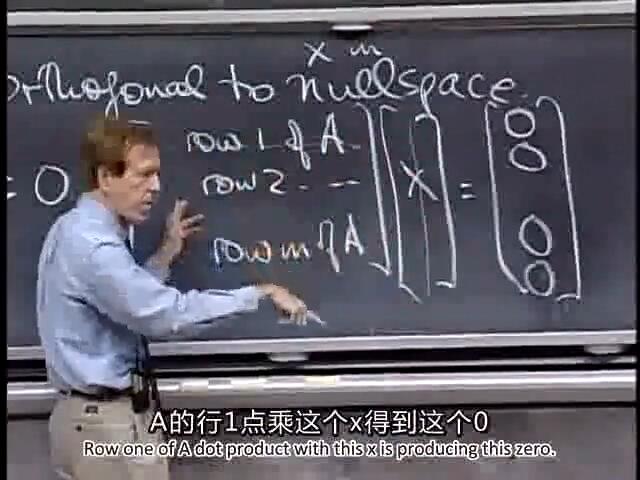 x in
orthogonal to nullspace.
= 0
row 1 of A
row 2 . --
row m of A
x
=
0
0
0
0
A的行1点乘这个x得到这个0
Row one of A dot product with this x is producing this zero.